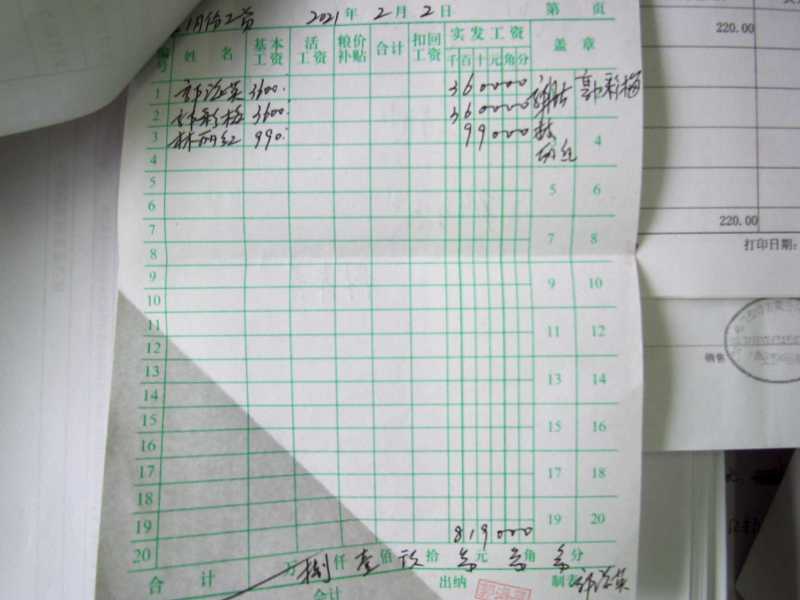 1月份工资 2021年2月2日 第 页
编号 姓名 基本工资 活工资 粮价补贴 合计 扣回工资 实发工资 盖章
千百十元角分
1 3600. 360000 郭彩梅
2 郭彩梅 3600. 360000
3 林丽红 990. 99000 林丽红
4 4
5 5 6
6
7 7 8
8
9 9 10
10
11 11 12
12
13 13 14
14
15 15 16
16
17 17 18
18
19 819000 19 20
20
合计 万捌仟壹佰玖拾零元零角零分
会计 出纳 制表
220.00
220.00
打印日期:
销售